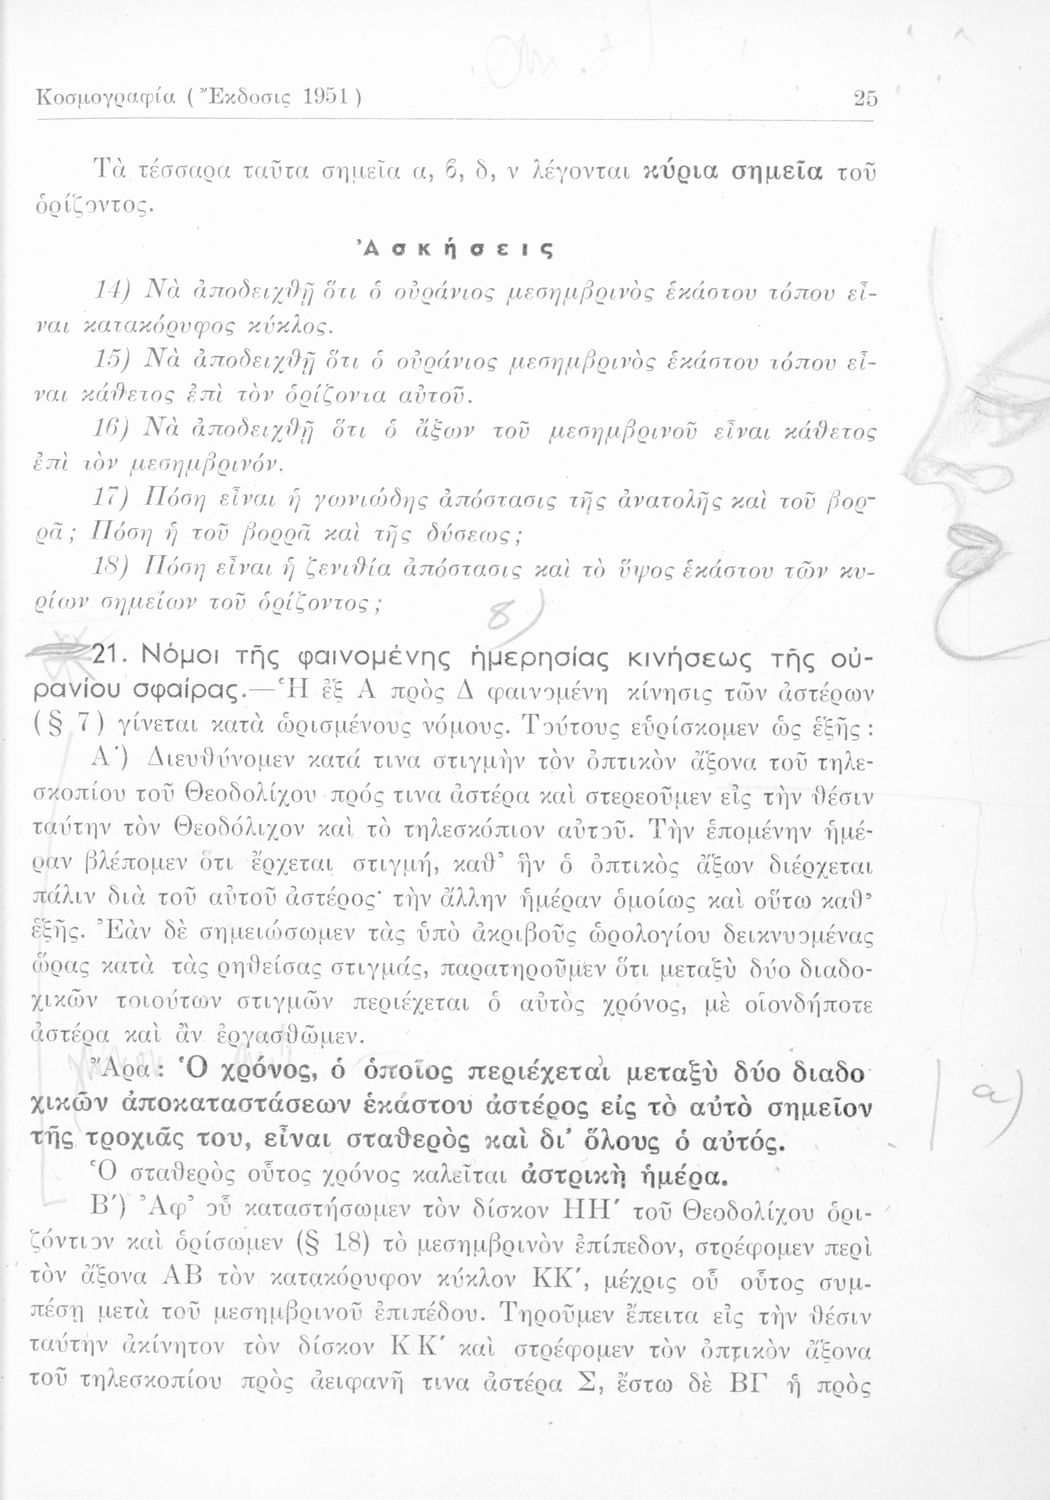 Κοσμογραφία ( Ἔκδοσις 1951 ) 25
Τὰ τέσσαρα ταῦτα σημεῖα α, β, δ, ν λέγονται κύρια σημεῖα τοῦ
ὁρίζοντος.
Ἀσκήσεις
14) Νὰ ἀποδειχθῇ ὅτι ὁ οὐράνιος μεσημβρινὸς ἑκάστου τόπου εἶ-
ναι κατακόρυφος κύκλος.
15) Νὰ ἀποδειχθῇ ὅτι ὁ οὐράνιος μεσημβρινὸς ἑκάστου τόπου εἶ-
ναι κάθετος ἐπὶ τὸν ὁρίζοντα αὐτοῦ.
16) Νὰ ἀποδειχθῇ ὅτι ὁ ἄξων τοῦ μεσημβρινοῦ εἶναι κάθετος
ἐπὶ τὸν μεσημβρινόν.
17) Πόση εἶναι ἡ γωνιώδης ἀπόστασις τῆς ἀνατολῆς καὶ τοῦ βορ-
ρᾶ; Πόση ἡ τοῦ βορρᾶ καὶ τῆς δύσεως;
18) Πόση εἶναι ἡ ζενιθία ἀπόστασις καὶ τὸ ὕψος ἑκάστου τῶν κυ-
ρίων σημείων τοῦ ὁρίζοντος;
8)
21. Νόμοι τῆς φαινομένης ἡμερησίας κινήσεως τῆς οὐ-
ρανίου σφαίρας.—Ἡ ἐξ Α πρὸς Δ φαινομένη κίνησις τῶν ἀστέρων
(§ 7) γίνεται κατὰ ὡρισμένους νόμους. Τούτους εὑρίσκομεν ὡς ἑξῆς :
Α΄) Διευθύνομεν κατά τινα στιγμὴν τὸν ὀπτικὸν ἄξονα τοῦ τηλε-
σκοπίου τοῦ Θεοδολίχου πρός τινα ἀστέρα καὶ στερεοῦμεν εἰς τὴν θέσιν
ταύτην τὸν Θεοδόλιχον καὶ τὸ τηλεσκόπιον αὐτοῦ. Τὴν ἑπομένην ἡμέ-
ραν βλέπομεν ὅτι ἔρχεται στιγμή, καθ’ ἣν ὁ ὀπτικὸς ἄξων διέρχεται
πάλιν διὰ τοῦ αὐτοῦ ἀστέρος· τὴν ἄλλην ἡμέραν ὁμοίως καὶ οὕτω καθ’
ἑξῆς. Ἐὰν δὲ σημειώσωμεν τὰς ὑπὸ ἀκριβοῦς ὡρολογίου δεικνυομένας
ὥρας κατὰ τὰς ρηθείσας στιγμάς, παρατηροῦμεν ὅτι μεταξὺ δύο διαδο-
χικῶν τοιούτων στιγμῶν περιέχεται ὁ αὐτὸς χρόνος, μὲ οἱονδήποτε
ἀστέρα καὶ ἂν ἐργασθῶμεν.
Ἄρα : Ὁ χρόνος, ὁ ὁποῖος περιέχεται μεταξὺ δύο διαδο
χικῶν ἀποκαταστάσεων ἑκάστου ἀστέρος εἰς τὸ αὐτὸ σημεῖον
τῆς τροχιᾶς του, εἶναι σταθερὸς καὶ δι’ ὅλους ὁ αὐτός.
α)
Ὁ σταθερὸς οὗτος χρόνος καλεῖται ἀστρικὴ ἡμέρα.
Β΄) Ἀφ’ οὗ καταστήσωμεν τὸν δίσκον ΗΗ΄ τοῦ Θεοδολίχου ὁρι-
ζόντιον καὶ ὁρίσωμεν (§ 18) τὸ μεσημβρινὸν ἐπίπεδον, στρέφομεν περὶ
τὸν ἄξονα ΑΒ τὸν κατακόρυφον κύκλον ΚΚ΄, μέχρις οὗ οὗτος συμ-
πέσῃ μετὰ τοῦ μεσημβρινοῦ ἐπιπέδου. Τηροῦμεν ἔπειτα εἰς τὴν θέσιν
ταύτην ἀκίνητον τὸν δίσκον ΚΚ΄ καὶ στρέφομεν τὸν ὀπτικὸν ἄξονα
τοῦ τηλεσκοπίου πρὸς ἀειφανῆ τινα ἀστέρα Σ, ἔστω δὲ ΒΓ ἡ πρὸς